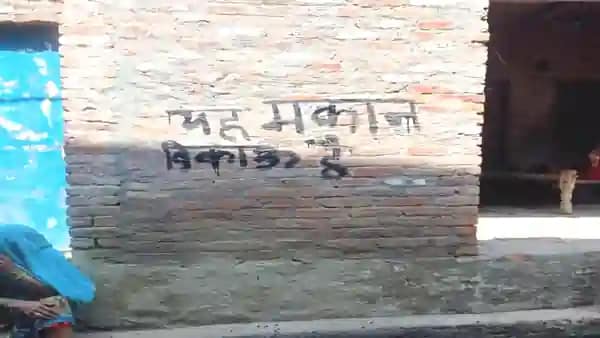 यह मकान
विकाऊ है